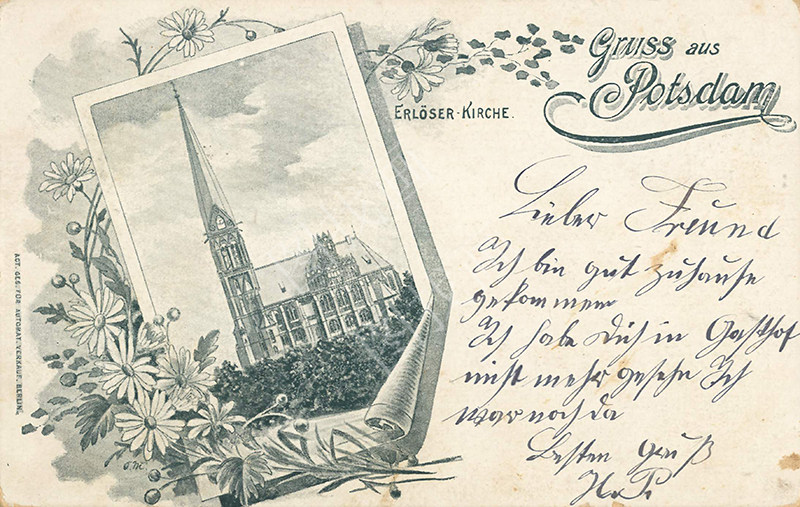 Gruss aus
Potsdam
ERLÖSER-KIRCHE.
Lieber Freund
Ich bin gut zuhause
gekommen
Ich habe Dich in Gasthof
nicht mehr gesehe Ich
war noch da
Besten Gruß
H. P.
ACT. GES. FÜR AUTOMAT. VERKAUF. BERLIN.